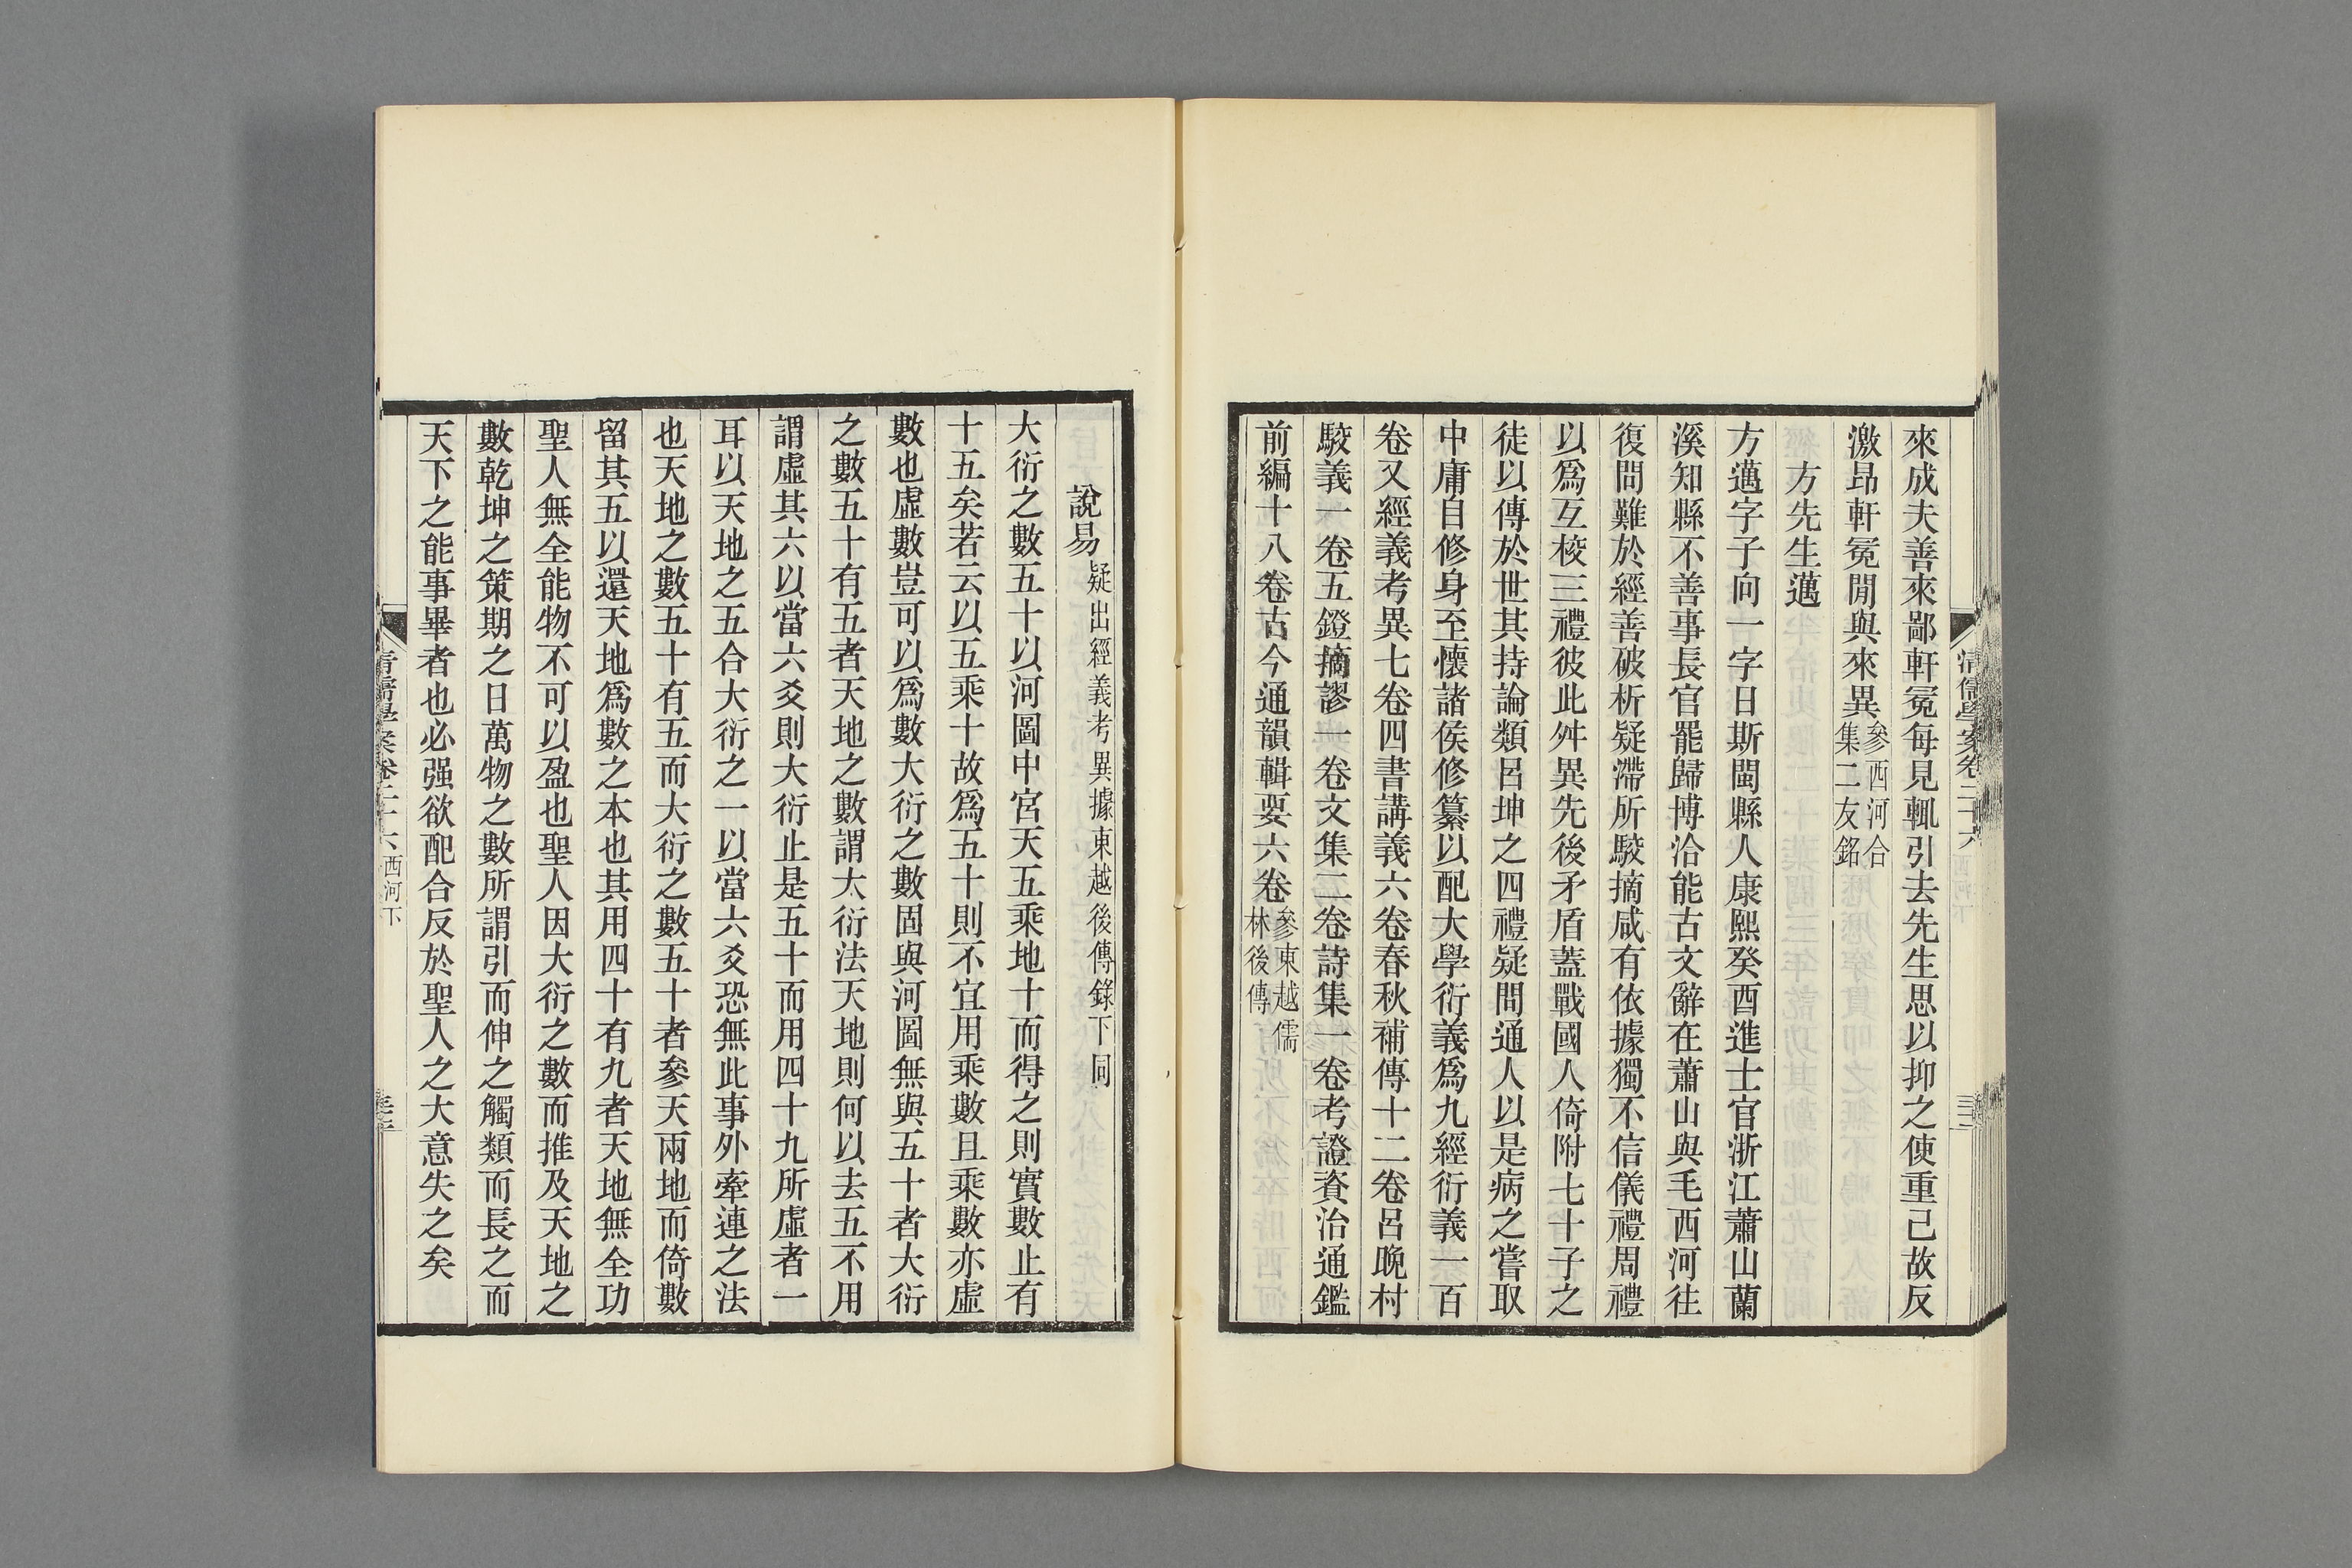 來成夫善來鄙軒冕每見輒引去先生思以抑之使重己故反
激昂軒冕閒與來異參西河合集二友銘
方先生邁
方邁字子向一字日斯閩縣人康熙癸酉進士官浙江蕭山蘭
溪知縣不善事長官罷歸博洽能古文辭在蕭山與毛西河往
復問難於經善破析疑滯所駮摘咸有依據獨不信儀禮周禮
以爲互校三禮彼此舛異先後矛盾蓋戰國人倚附七十子之
徒以傳於世其持論類呂坤之四禮疑問通人以是病之嘗取
中庸自修身至懷諸侯修纂以配大學衍義爲九經衍義一百
卷又經義考異七卷四書講義六卷春秋補傳十二卷呂晚村
駮義一卷五鐙摘謬一卷文集二卷詩集一卷考證資治通鑑
前編十八卷古今通韻輯要六卷參東越儒林後傳
說易疑出經義考異據東越後傳錄下同
大衍之數五十以河圖中宮天五乘地十而得之則實數止有
十五矣若云以五乘十故爲五十則不宜用乘數且乘數亦虛
數也虛數豈可以爲數大衍之數固與河圖無與五十者大衍
之數五十有五者天地之數謂大衍法天地則何以去五不用
謂虛其六以當六爻則大衍止是五十而用四十九所虛者一
耳以天地之五合大衍之一以當六爻恐無此事外牽連之法
也天地之數五十有五而大衍之數五十者參天兩地而倚數
留其五以還天地爲數之本也其用四十有九者天地無全功
聖人無全能物不可以盈也聖人因大衍之數而推及天地之
數乾坤之策期之日萬物之數所謂引而伸之觸類而長之而
天下之能事畢者也必强欲配合反於聖人之大意失之矣
清儒學案卷二十六 西河下